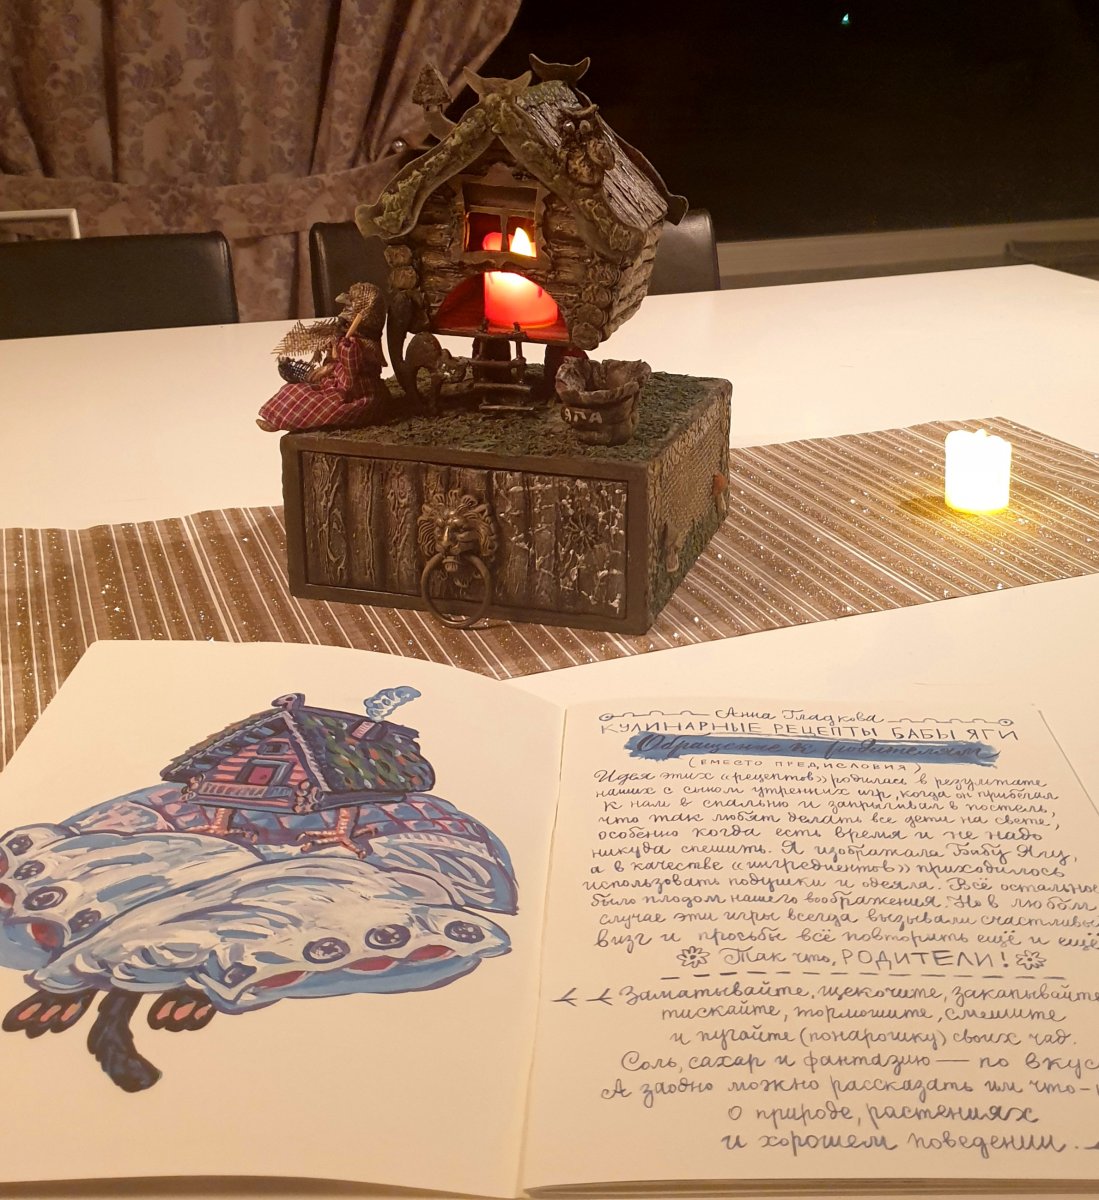 ЯГА
Анна Гладкова
КУЛИНАРНЫЕ РЕЦЕПТЫ БАБЫ ЯГИ
Обращение к родителям
(ВМЕСТО ПРЕДИСЛОВИЯ)
Идея этих «рецептов» родилась в результате
наших с сыном утренних игр, когда он прибегал
к нам в спальню и запрыгивал в постель,
что так любят делать все дети на свете,
особенно когда есть время и не надо
никуда спешить. Я изображала Бабу Ягу,
а в качестве «ингредиентов» приходилось
использовать подушки и одеяла. Всё остальное
было плодом нашего воображения. Но в любом
случае эти игры всегда вызывали счастливый
визг и просьбы всё повторить ещё и ещё
Так что, РОДИТЕЛИ!
Заматывайте, щекочите, закапывайте
тискайте, тормошите, смешите
и пугайте (понарошку) своих чад.
Соль, сахар и фантазию — по вкус
А заодно можно рассказать им что-
о природе, растениях
и хорошем поведении.